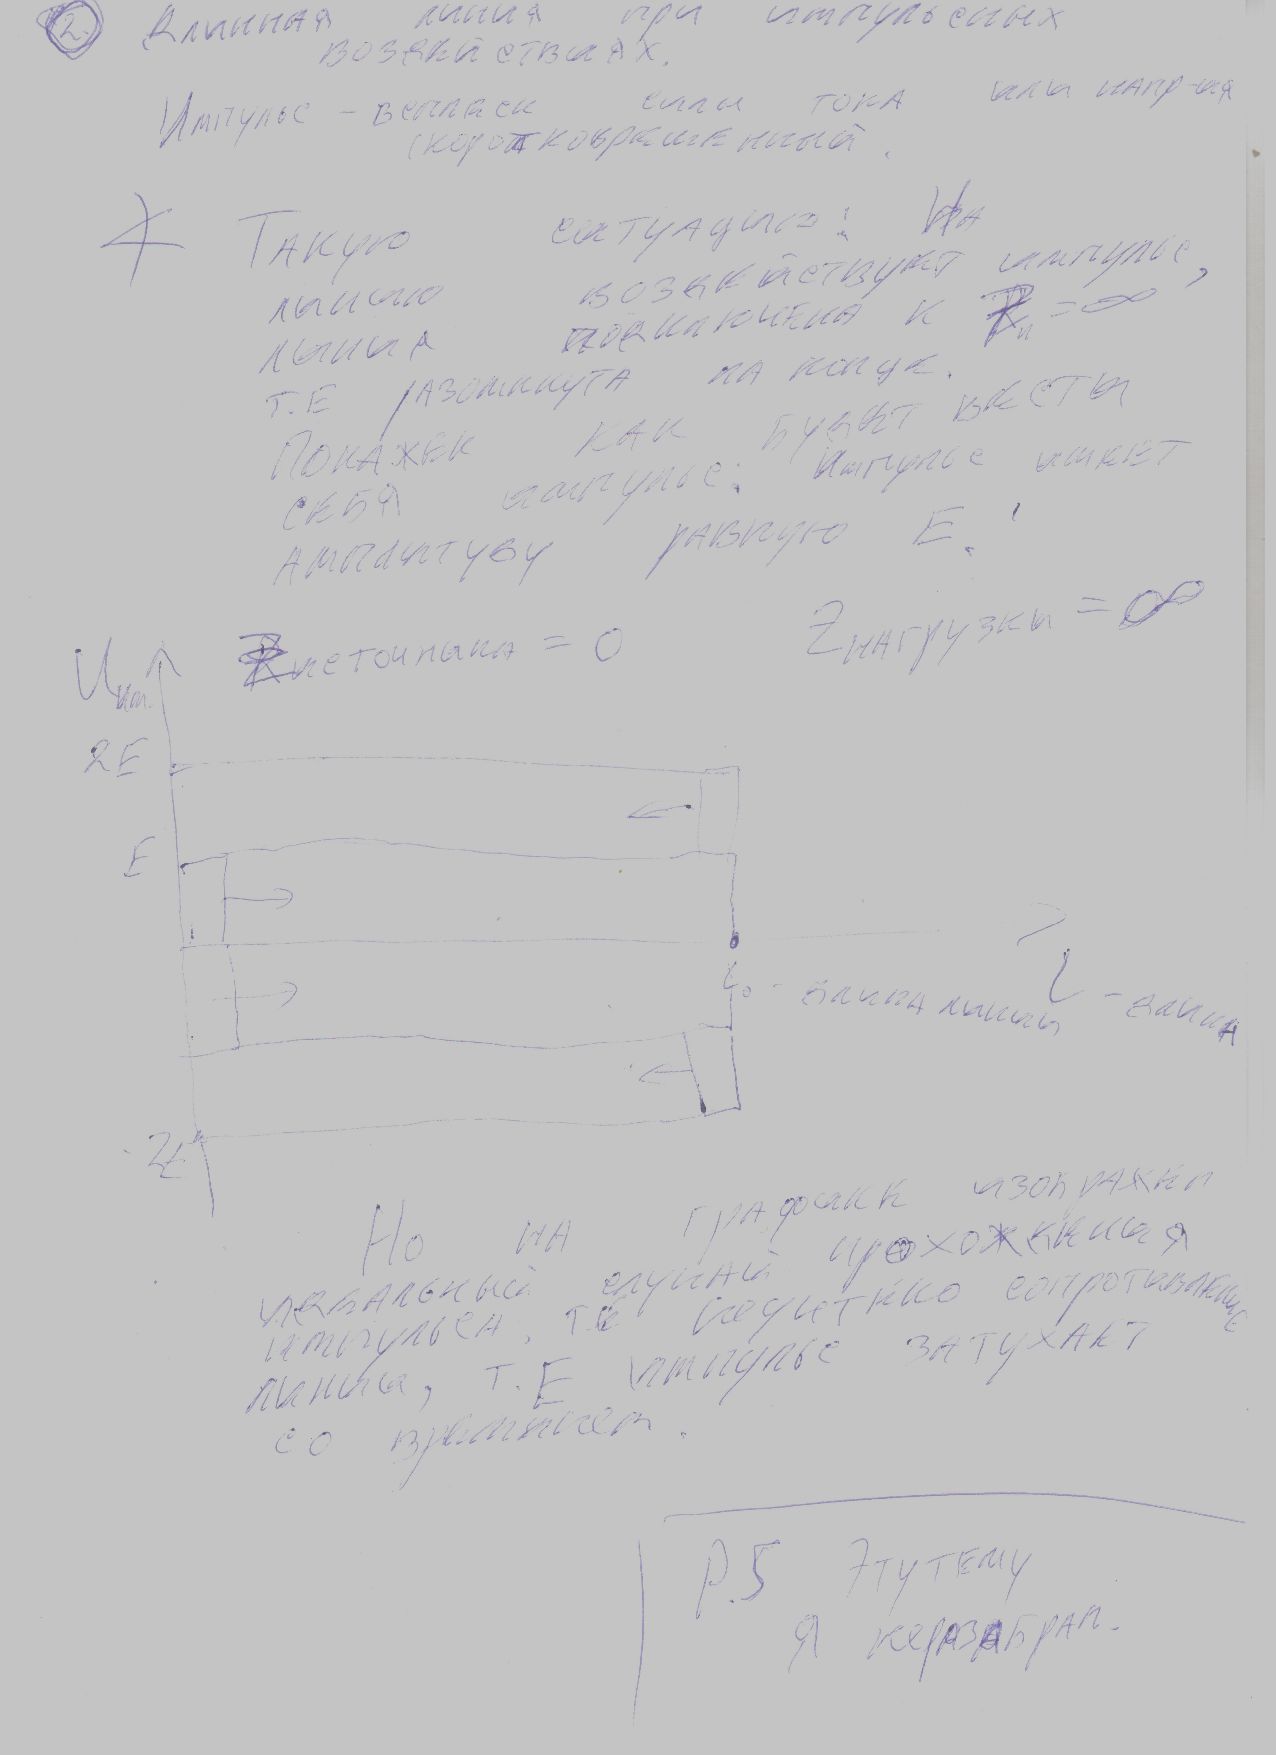 2. Длинная линия при импульсных
воздействиях.
Импульс – всплеск силы тока или напр-ия
скоротковременный.
Такую ситуацию: На
линию воздействует импульс,
линия подключена к Rн = ∞
т.е разомкнута на конце.
Покажем как будет вести
себя импульс. Импульс имеет
амплитуду равную E.
Zнагрузки = ∞
Rисточника = 0
Uим.
2E
E
l₀ - длина линии
l - длина
-2E
Но на графике изображён
идеальный случай прохождения
импульса, т.е неучтено сопротивление
линии, т.е импульс затухает
со временем.
P.S Эту тему
я неразабрал.